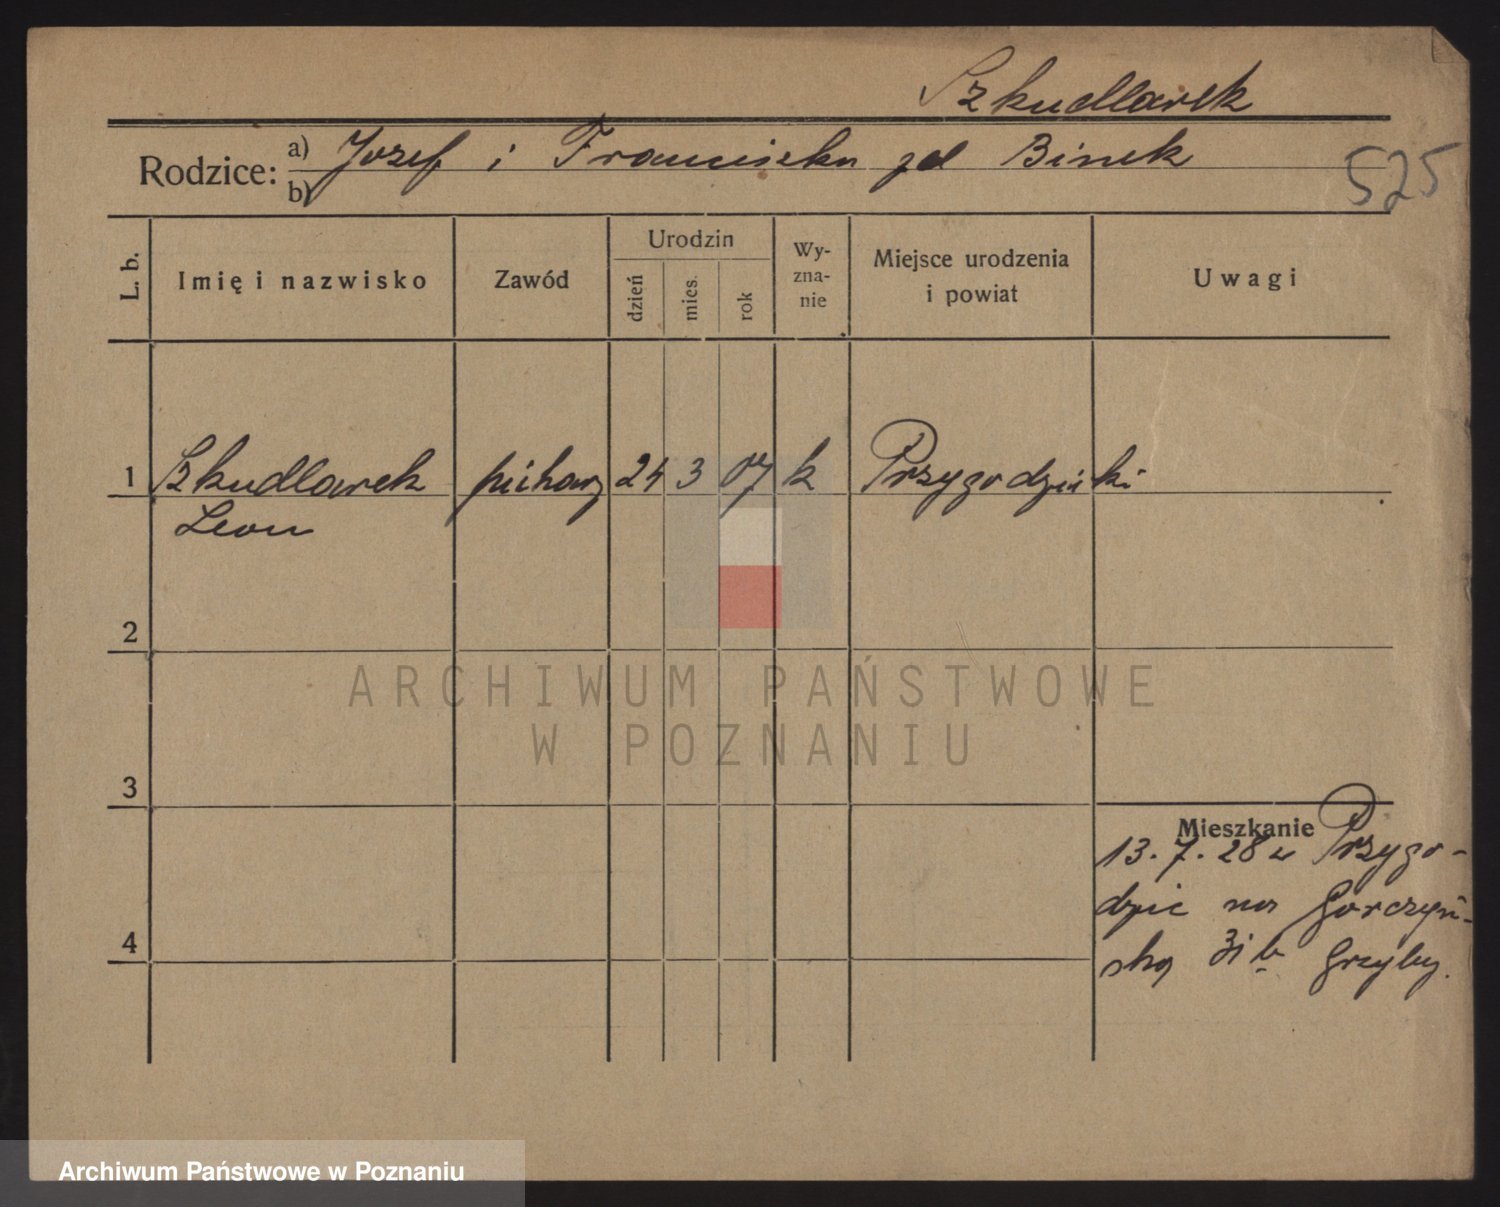 Szkudlarek
Rodzice: a) Jozef i Franciszka zd Binek
b)
525
L. b.
Imię i nazwisko
Zawód
Urodzin
dzień
mies.
rok
Wy-
zna-
nie
Miejsce urodzenia
i powiat
Uwagi
1 Szkudlarek piekarz 24 3 07 k
Leon
2
3
4
Mieszkanie
13.7.28 z Przygo-
dzic na Gorczyń-
ską
ARCHIWUM PAŃSTWOWE
W POZNANIU
Archiwum Państwowe w Poznaniu